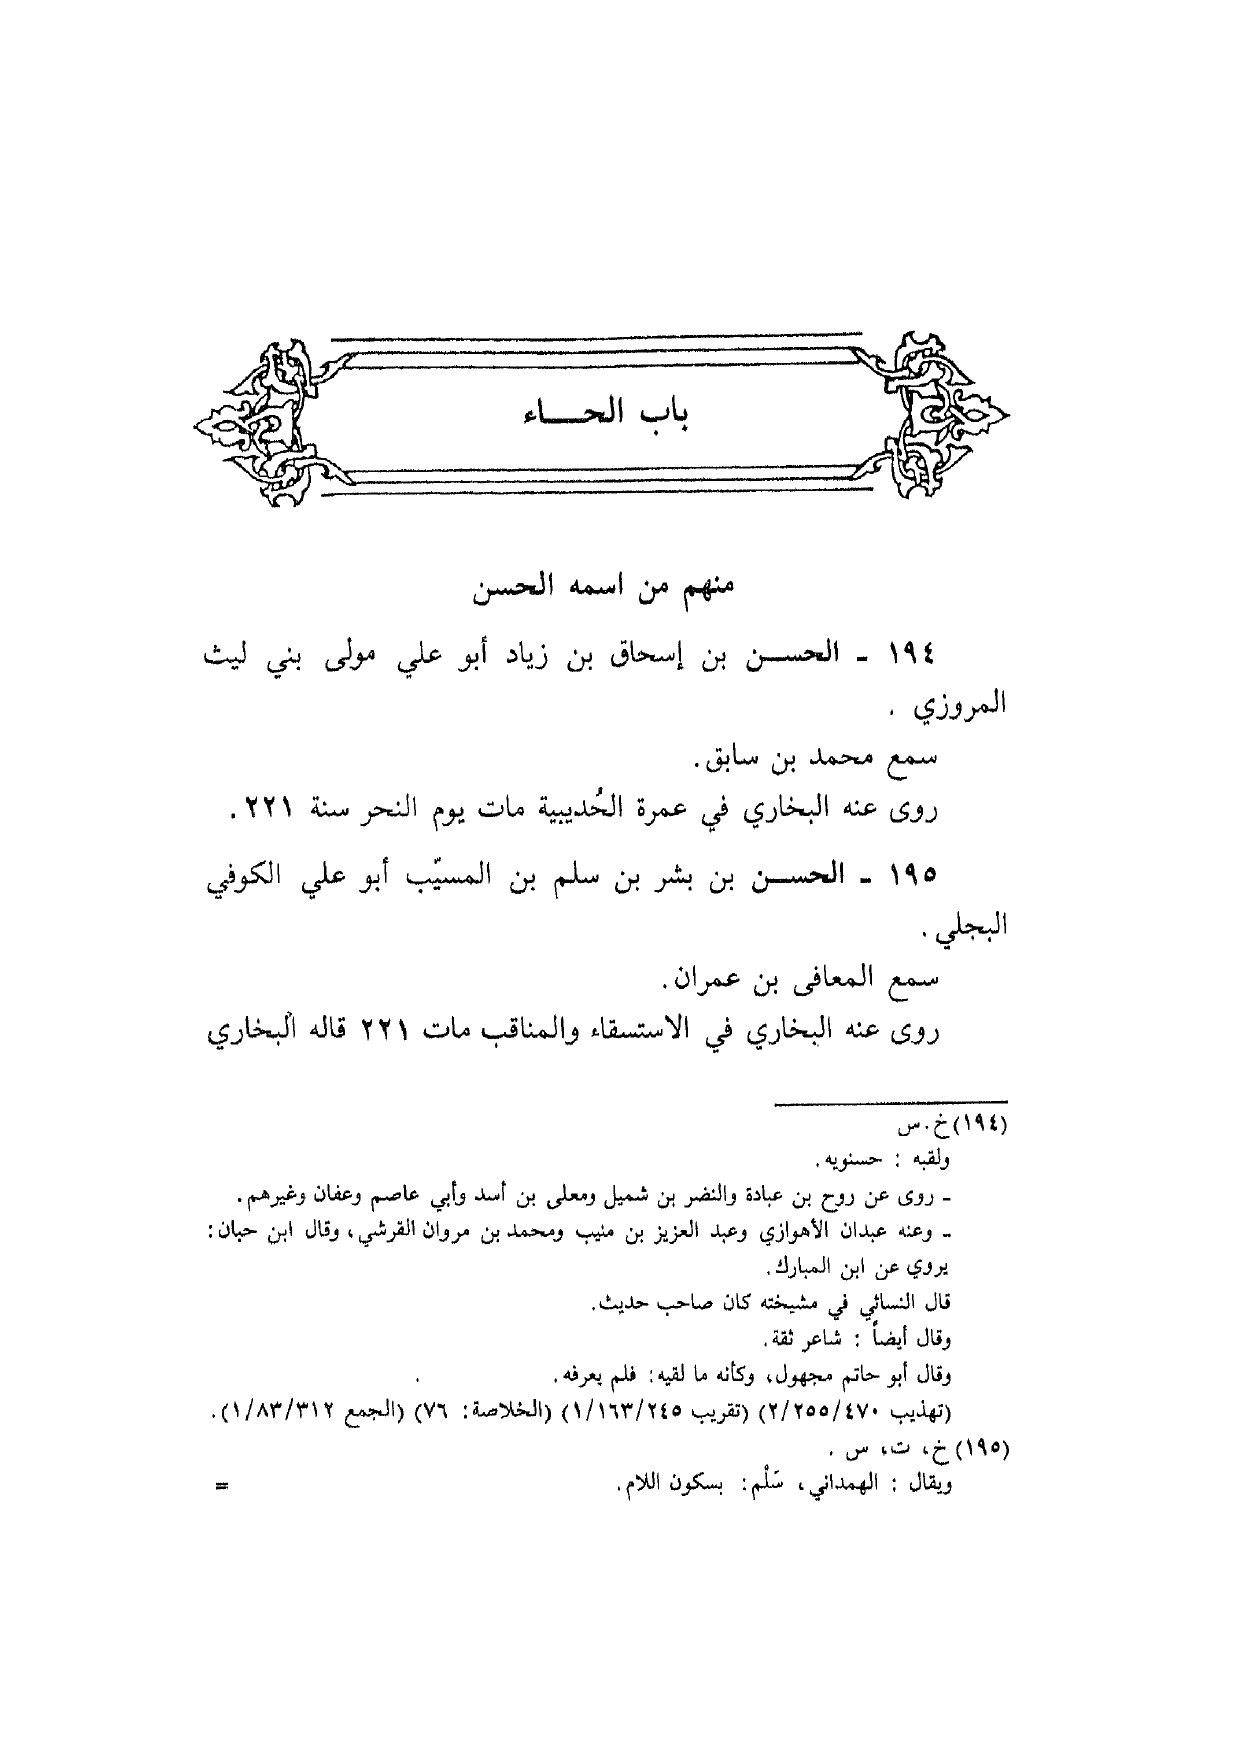 باب الحـــاء
منهم من اسمه الحسن
١٩٤ ـ الحســن بن إسحاق بن زياد أبو علي مولى بني ليث
المروزي .
سمع محمد بن سابق.
روى عنه البخاري في عمرة الحُديبية مات يوم النحر سنة ٢٢١ .
١٩٥ ـ الحســن بن بشر بن سلم بن المسيّب أبو علي الكوفي
البجلي .
سمع المعافى بن عمران .
روى عنه البخاري في الاستسقاء والمناقب مات ٢٢١ قاله البخاري
(١٩٤) خ . س
ولقبه : حسنويه .
ـ روى عن روح بن عبادة والنضر بن شميل ومعلى بن أسد وأبي عاصم وعفان وغيرهم .
ـ وعنه عبدان الأهوازي وعبد العزيز بن منيب ومحمد بن مروان القرشي، وقال ابن حبان :
يروي عن ابن المبارك .
قال النسائي في مشيخته كان صاحب حديث .
وقال أيضاً : شاعر ثقة .
وقال أبو حاتم مجهول، وكأنه ما لقيه : فلم يعرفه .
(تهذيب ٢/٢٥٥/٤٧٠) (تقريب ١/١٦٣/٢٤٥) (الخلاصة : ٧٦) (الجمع ١/٨٣/٣١٢) .
(١٩٥) خ، ت، س .
ويقال : الهمداني، سَلْم : بسكون اللام . =